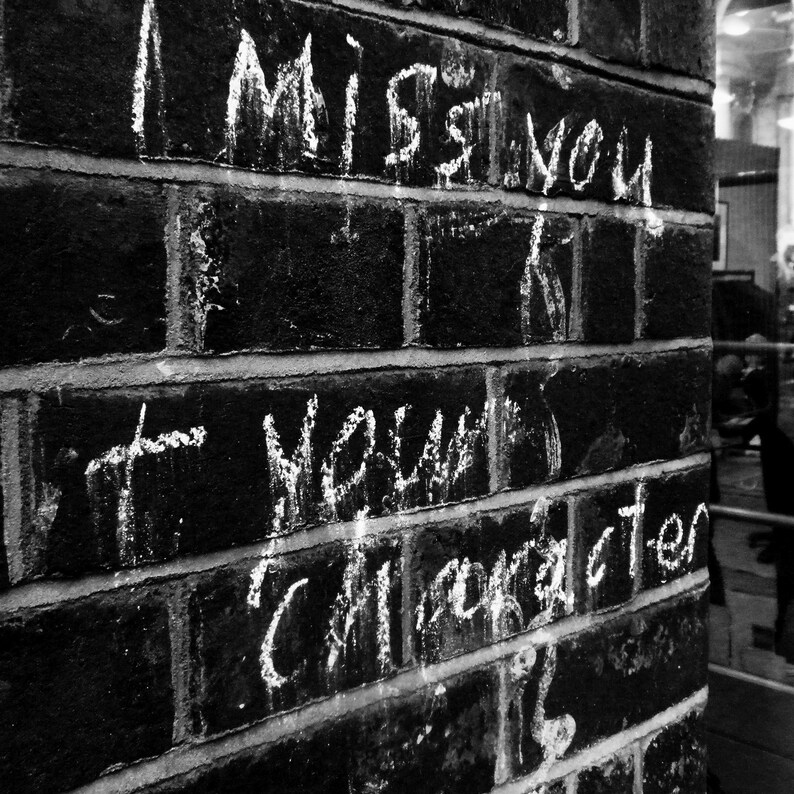 I Miss you
+ your
character